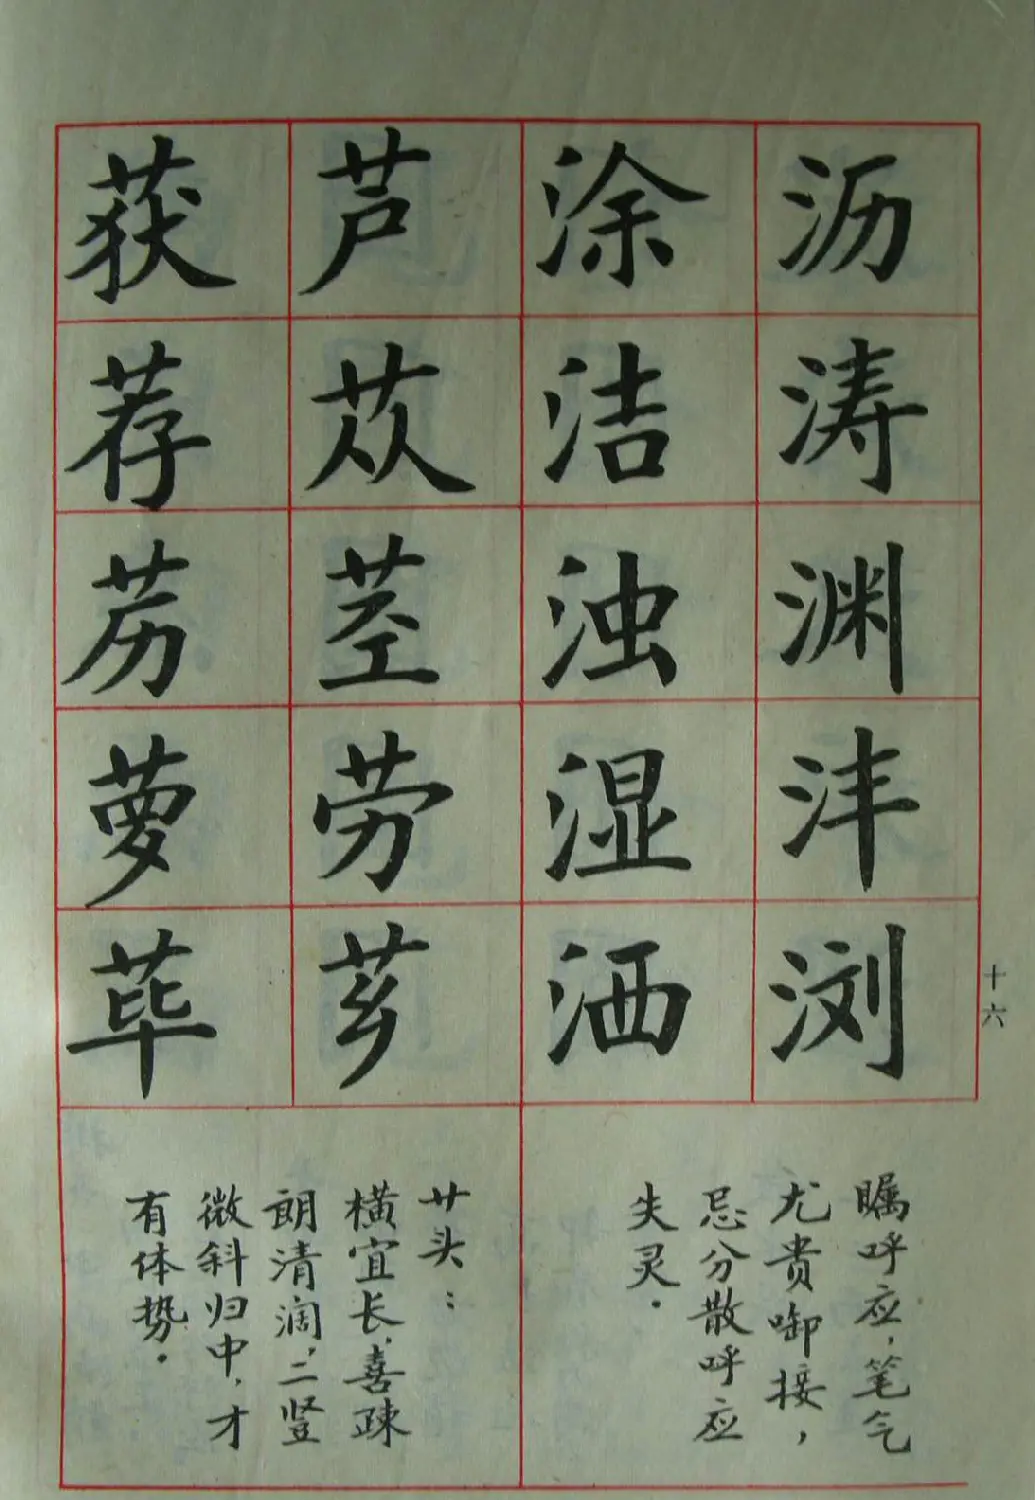 沥涛渊沣浏
涂洁浊湿洒
芦苁茎劳芗
获荐苈萝荜
瞩呼应，笔气
尤贵啣接，
忌分散呼应
失灵．
艹头：
横宜长，喜疎
朗清阔，二竖
微斜归中，才
有体势．
十六